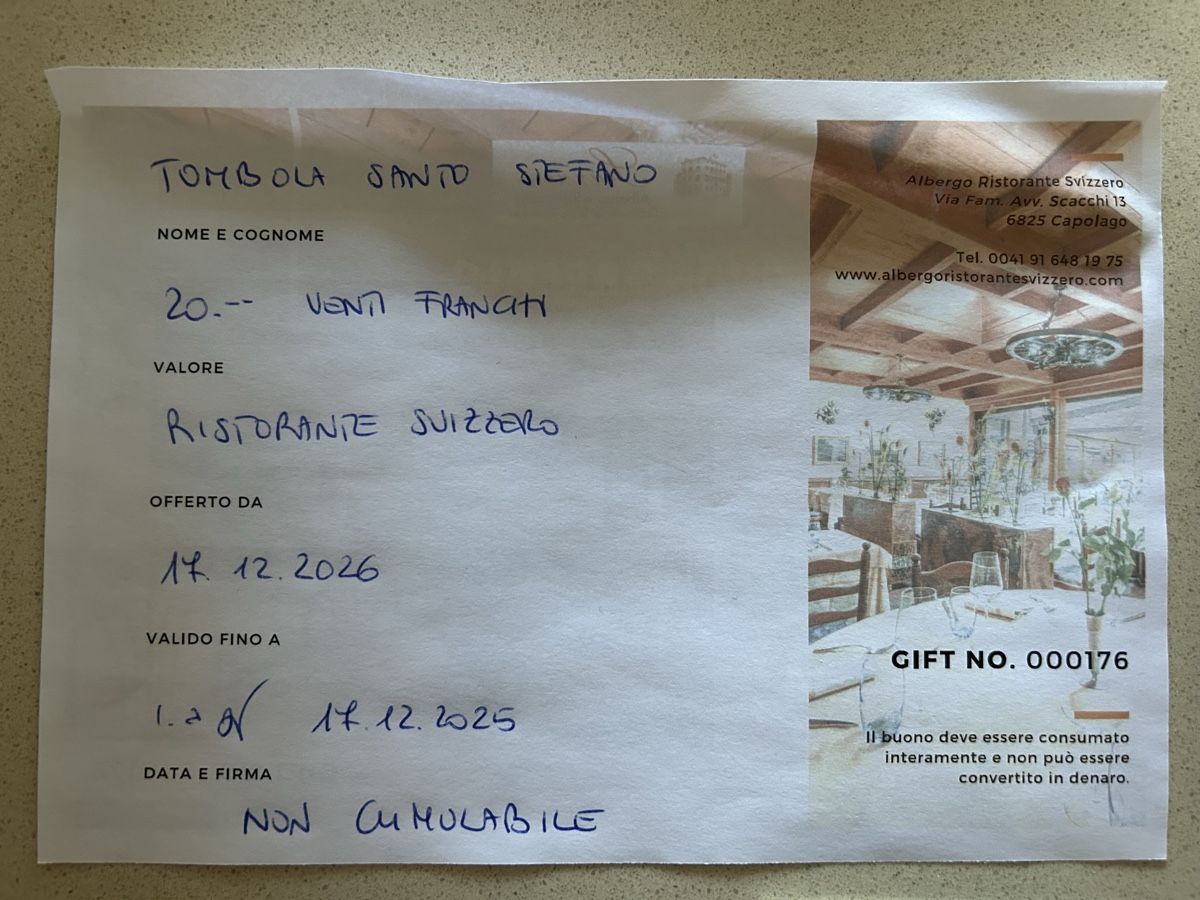 TOMBOLA SANTO STEFANO
NOME E COGNOME
20.-- VENTI FRANCHI
VALORE
RISTORANTE SVIZZERO
OFFERTO DA
17.12.2026
VALIDO FINO A
17.12.2025
DATA E FIRMA
NON CUMULABILE
Albergo Ristorante Svizzero
Via Fam. Avv. Scacchi 13
6825 Capolago
Tel. 0041 91 648 19 75
www.albergoristorantesvizzero.com
GIFT NO. 000176
Il buono deve essere consumato
interamente e non può essere
convertito in denaro.